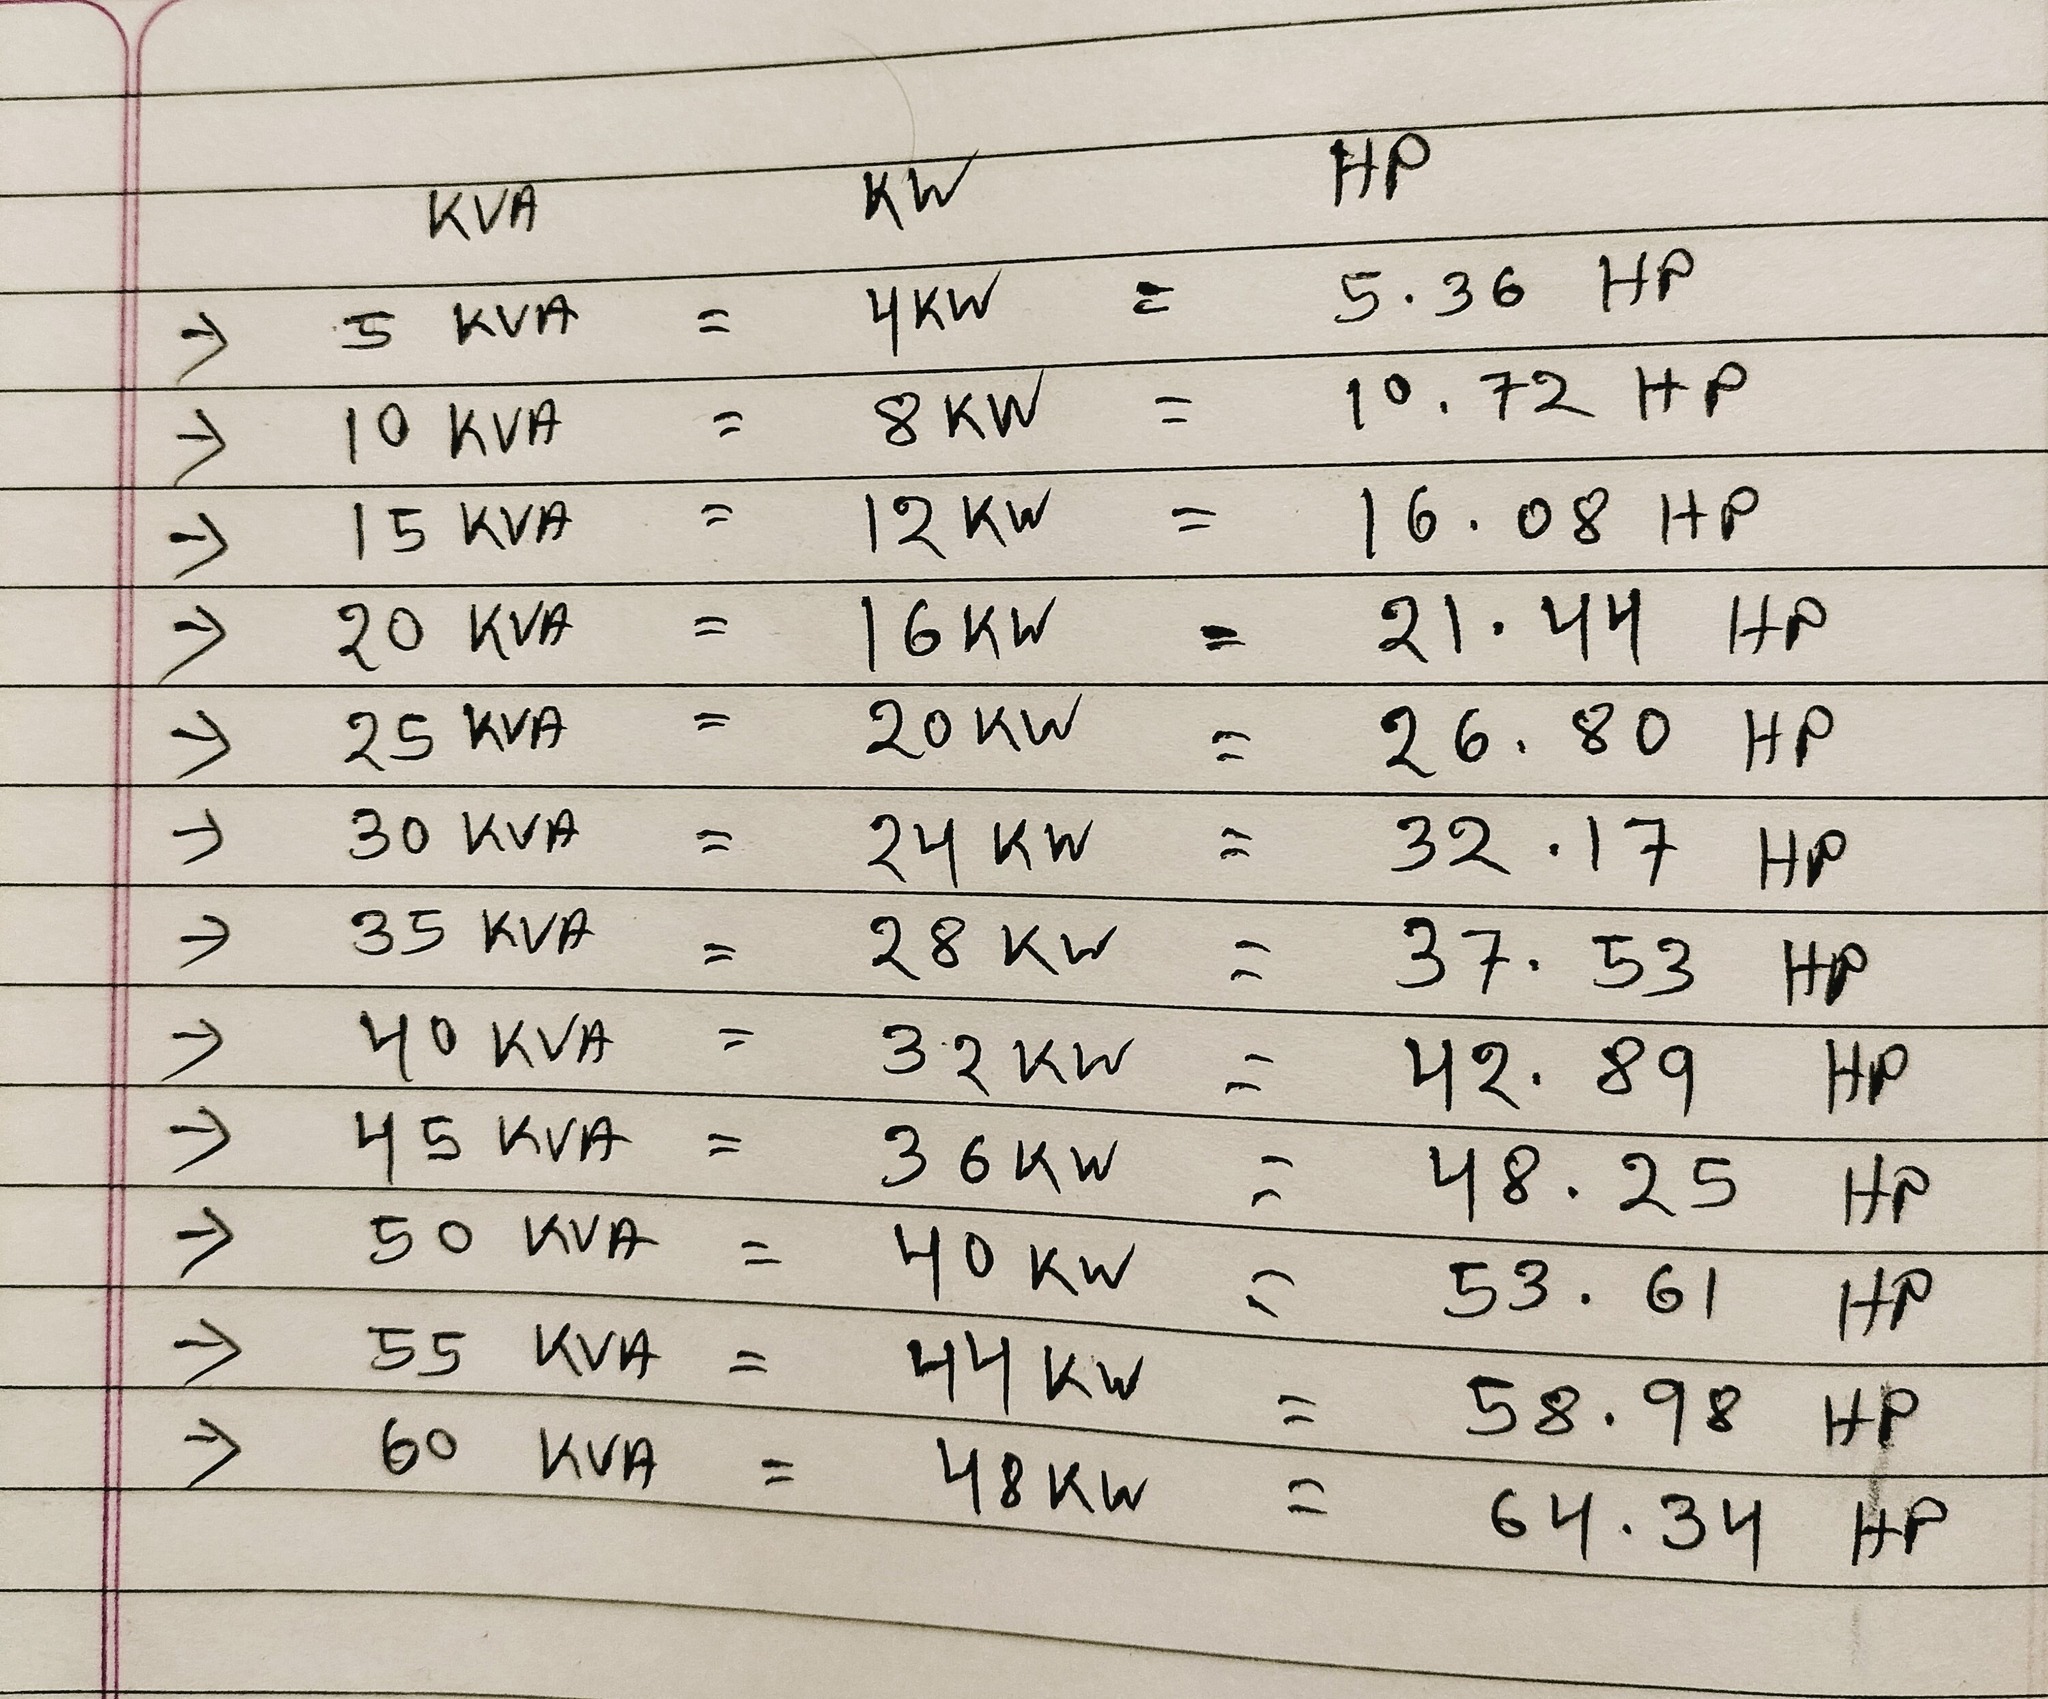 KVA KW HP
→ 5 KVA = 4KW = 5.36 HP
→ 10 KVA = 8 KW = 10.72 HP
→ 15 KVA = 12 KW = 16.08 HP
→ 20 KVA = 16 KW = 21.44 HP
→ 25 KVA = 20 KW = 26.80 HP
→ 30 KVA = 24 KW = 32.17 HP
→ 35 KVA = 28 KW = 37.53 HP
→ 40 KVA = 32 KW = 42.89 HP
→ 45 KVA = 36 KW = 48.25 HP
→ 50 KVA = 40 KW = 53.61 HP
→ 55 KVA = 44 KW = 58.98 HP
→ 60 KVA = 48 KW = 64.34 HP